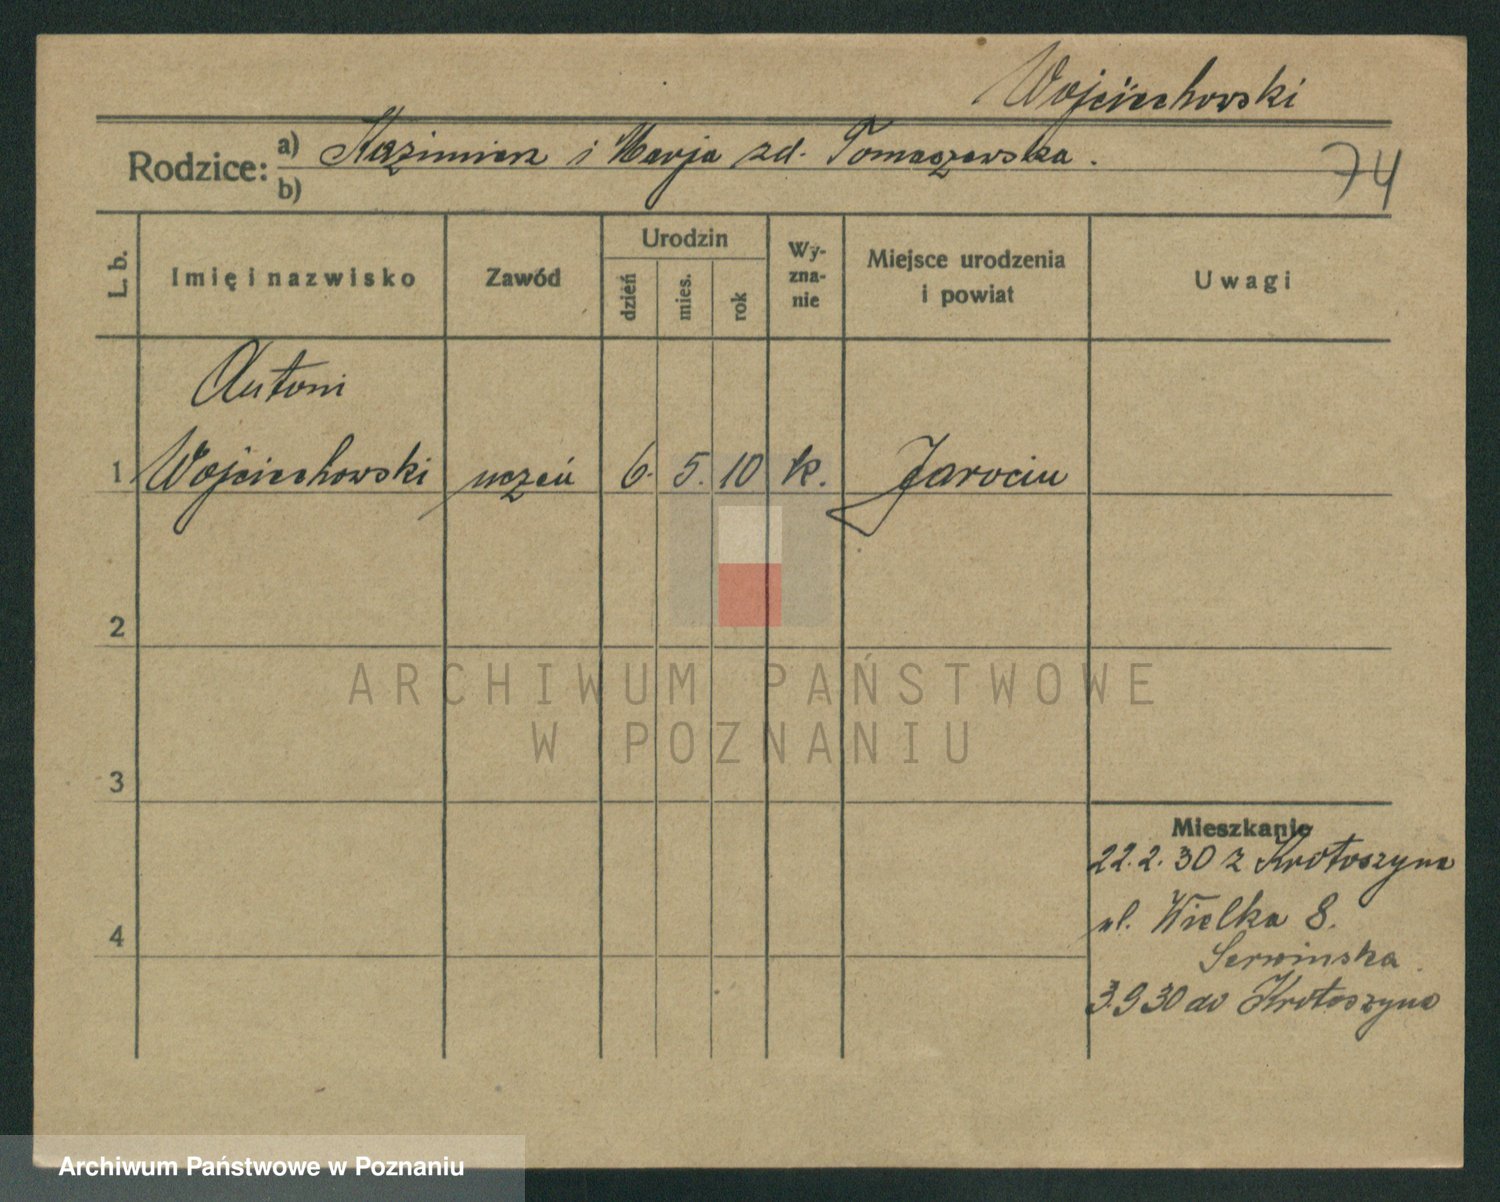 Wojciechowski
Rodzice: a) Kazimierz i Marja zd. Tomaszewska.
b)
74
L. b.
Imię i nazwisko
Zawód
Urodzin
dzień
mies.
rok
Wy-
zna-
nie
Miejsce urodzenia
i powiat
Uwagi
Antoni
1 Wojciechowski uczeń 6. 5. 10 k. Jarocin
2
3
4
Mieszkanie
22.2.30 z Krotoszyna
ul. Wielka 8.
Serwinska.
3.9 30 do Krotoszyna
ARCHIWUM PAŃSTWOWE
W POZNANIU
Archiwum Państwowe w Poznaniu